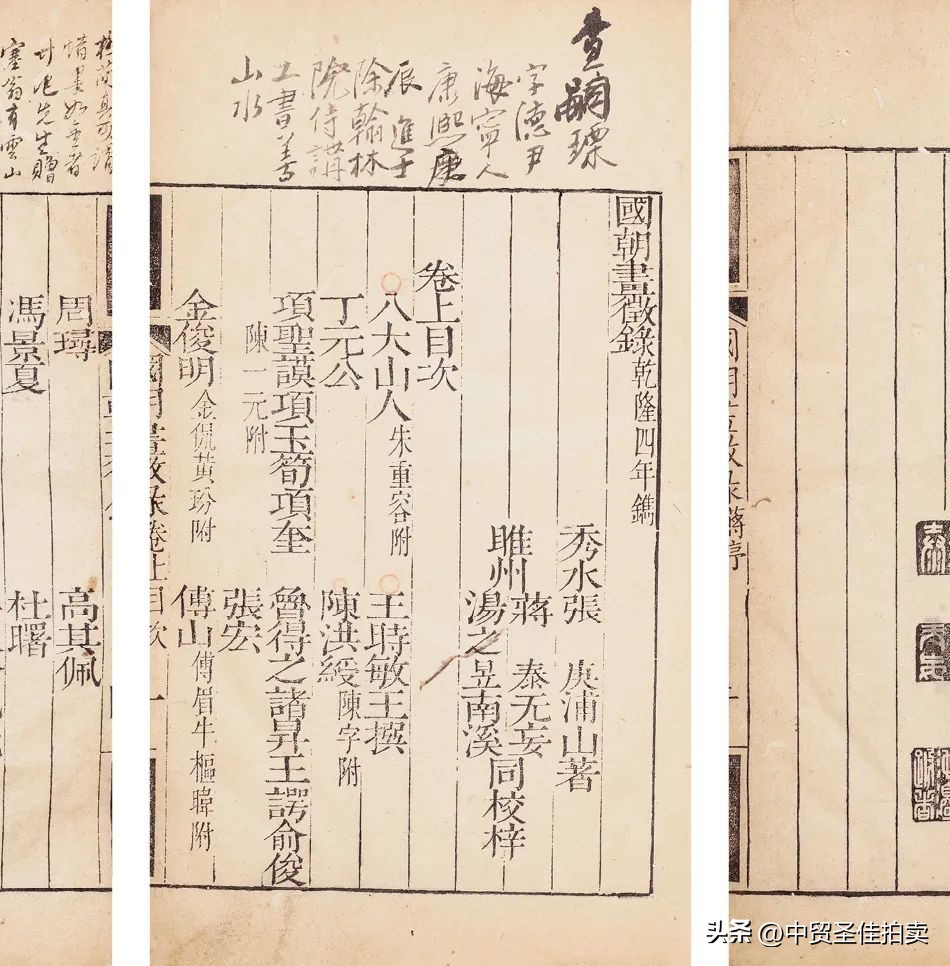 查嗣瑮
字德尹
海寧人
康熙庚
辰進士
除翰林
院侍講
工書善
山水
國朝畫徵錄乾隆四年鐫
秀水張庚浦山著
睢州蔣泰无妄
湯之昱南溪同校梓
卷上目次
八大山人朱重容附
王時敏王撰
丁元公
陳洪綬陳字附
項聖謨項玉筍項奎
魯得之諸昇王諤俞俊
陳一元附
張宏
金俊明金侃黃玢附
傅山傅眉牛樞暐附
國朝畫徵錄卷上目次
一
周璕
高其佩
馮景夏
杜曙
先生贈
塞翁有雲山
头条 @中贸圣佳拍卖